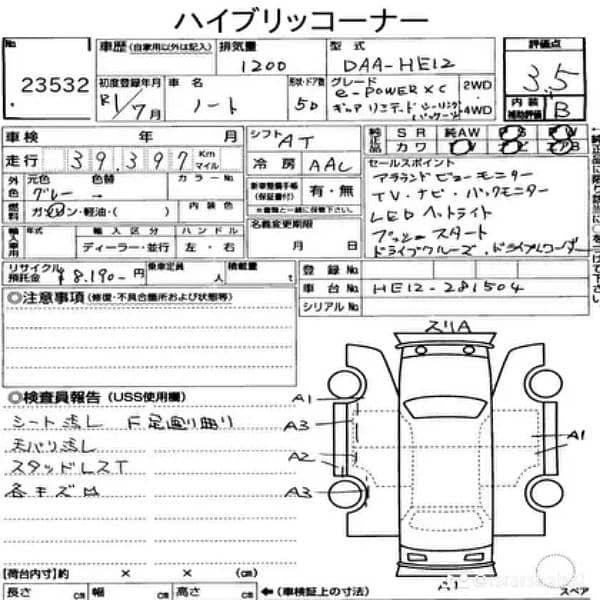 ハイブリッコーナー
No 23532
車歴 (自家用以外は記入) 排気量 1200 型式 DAA-HE12
評価点 3.5
内装補助評価 B
初度登録年月 R1/7月 車名 ノート 形状・ドア数 5D
グレード e-POWER X C 2WD・4WD
車検 年 月 シフト AT
純正品 SR 純AW PS PW
カワ エアB
走行 39,397 Km マイル
冷房 AAC
セールスポイント
アラウンドビューモニター
TV・ナビ・バックモニター
LEDヘッドライト
プッシュスタート
ドライブクルーズ・ドライブレコーダー
外色 元色 グレー 色替 → カラーNo.
燃料 ガソリン・軽油・( ) 内装色
新車整備手帳(保証書付) 有・無
※書類と一緒に保管下さい。
名義変更期限 月 日
輸入車用 年式 輸入区分 ハンドル
ディーラー・並行 左・右
リサイクル預託金 ¥8,190-円 乗車定員 人 積載量 t
登録No.
車台No. HE12-281504
シリアルNo.
◎注意事項 (修復・不具合箇所および状態等)
◎検査員報告 (USS使用欄)
シート汚レ F足廻り曲り
天バリ汚レ
スタッドレスT
各キズ凹
スリA
A1
A3
A2
A3
A1
A1
スペア
【荷台内寸】約 × × (cm)
長さ cm 幅 cm 高さ cm ←(車検証上の寸法)